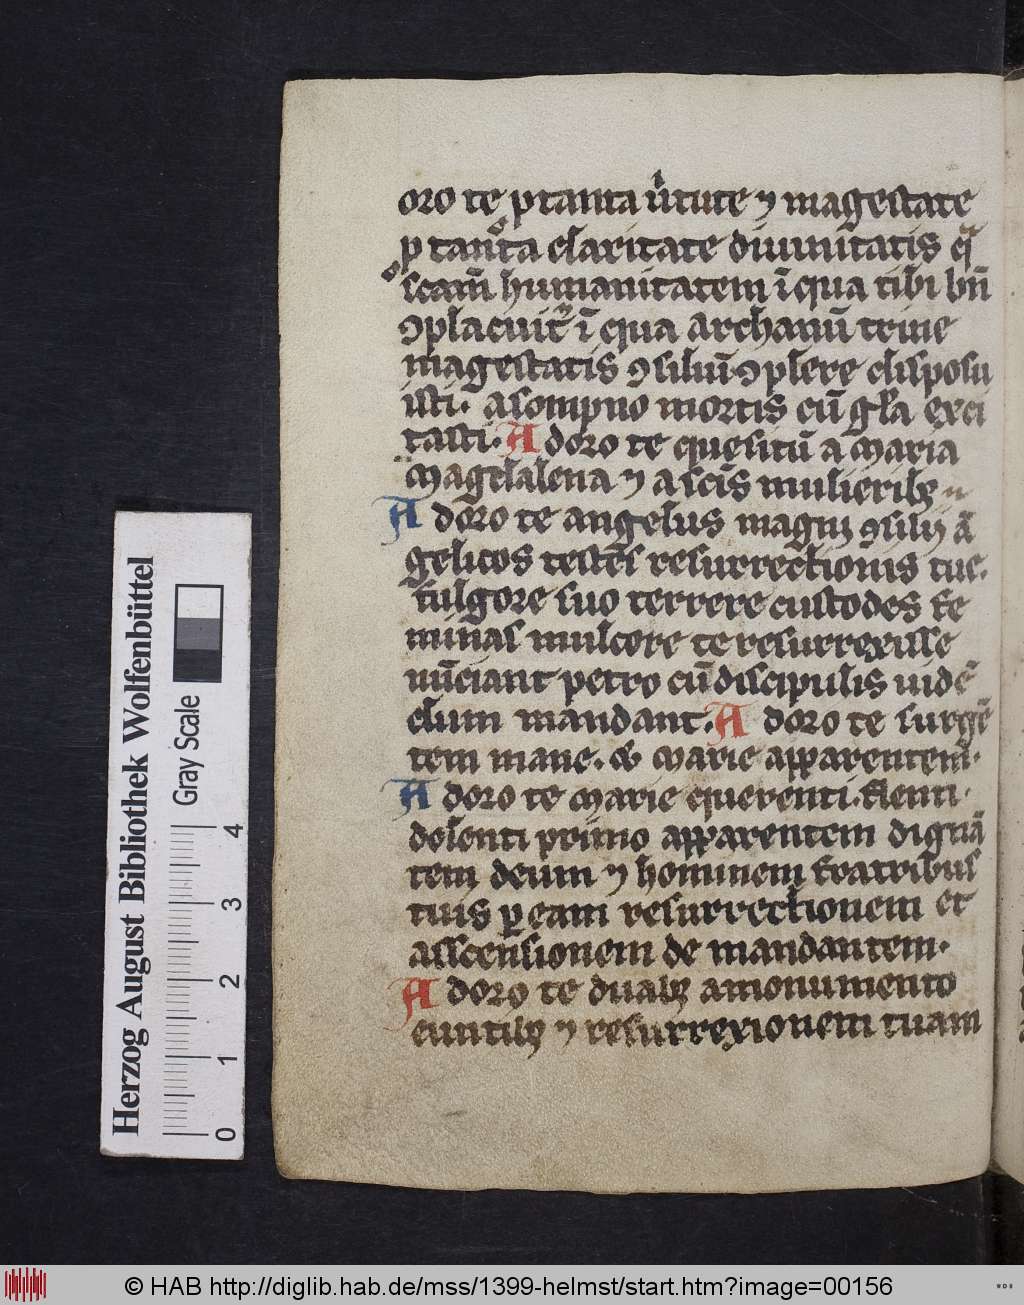 oro te p tanta ütute ⁊ magestate
p tanta claritate diuinitatis q̄
scam̄ humanitatem ī qua tibi bn̄
ꝯplacuit ī qua archanū trine
magestatis ꝯsiliū ꝯplere disposu
isti. a sompno mortis cū gła exci
tasti. Adoro te quesitū a maria
magdalena ⁊ a scīs mulieribꝫ
Adoro te angelus magni ꝯsilij ā
gelicos testes resurrectionis tue.
fulgore suo terrere custodes fe
minas mulcere te resurrexisse
nūciant petro cū discipulis uidē
dum mandant. Adoro te surgē
tem mane. & marie apparentem.
Adoro te marie querenti. flenti.
dolenti primo apparentem dignā
tem deum ⁊ hominem fratribus
tuis ꝑ eam resurrectionem et
asscensionem de mandantem.
Adoro te duabꝫ a monumento
euntibꝫ ⁊ resurrexionem tuam
Herzog August Bibliothek Wolfenbüttel
Gray Scale
0 1 2 3 4
© HAB http://diglib.hab.de/mss/1399-helmst/start.htm?image=00156